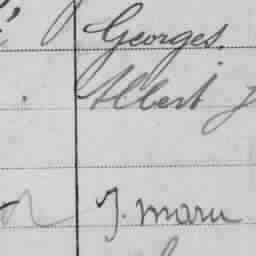 Georges.
Albert J
J. maru